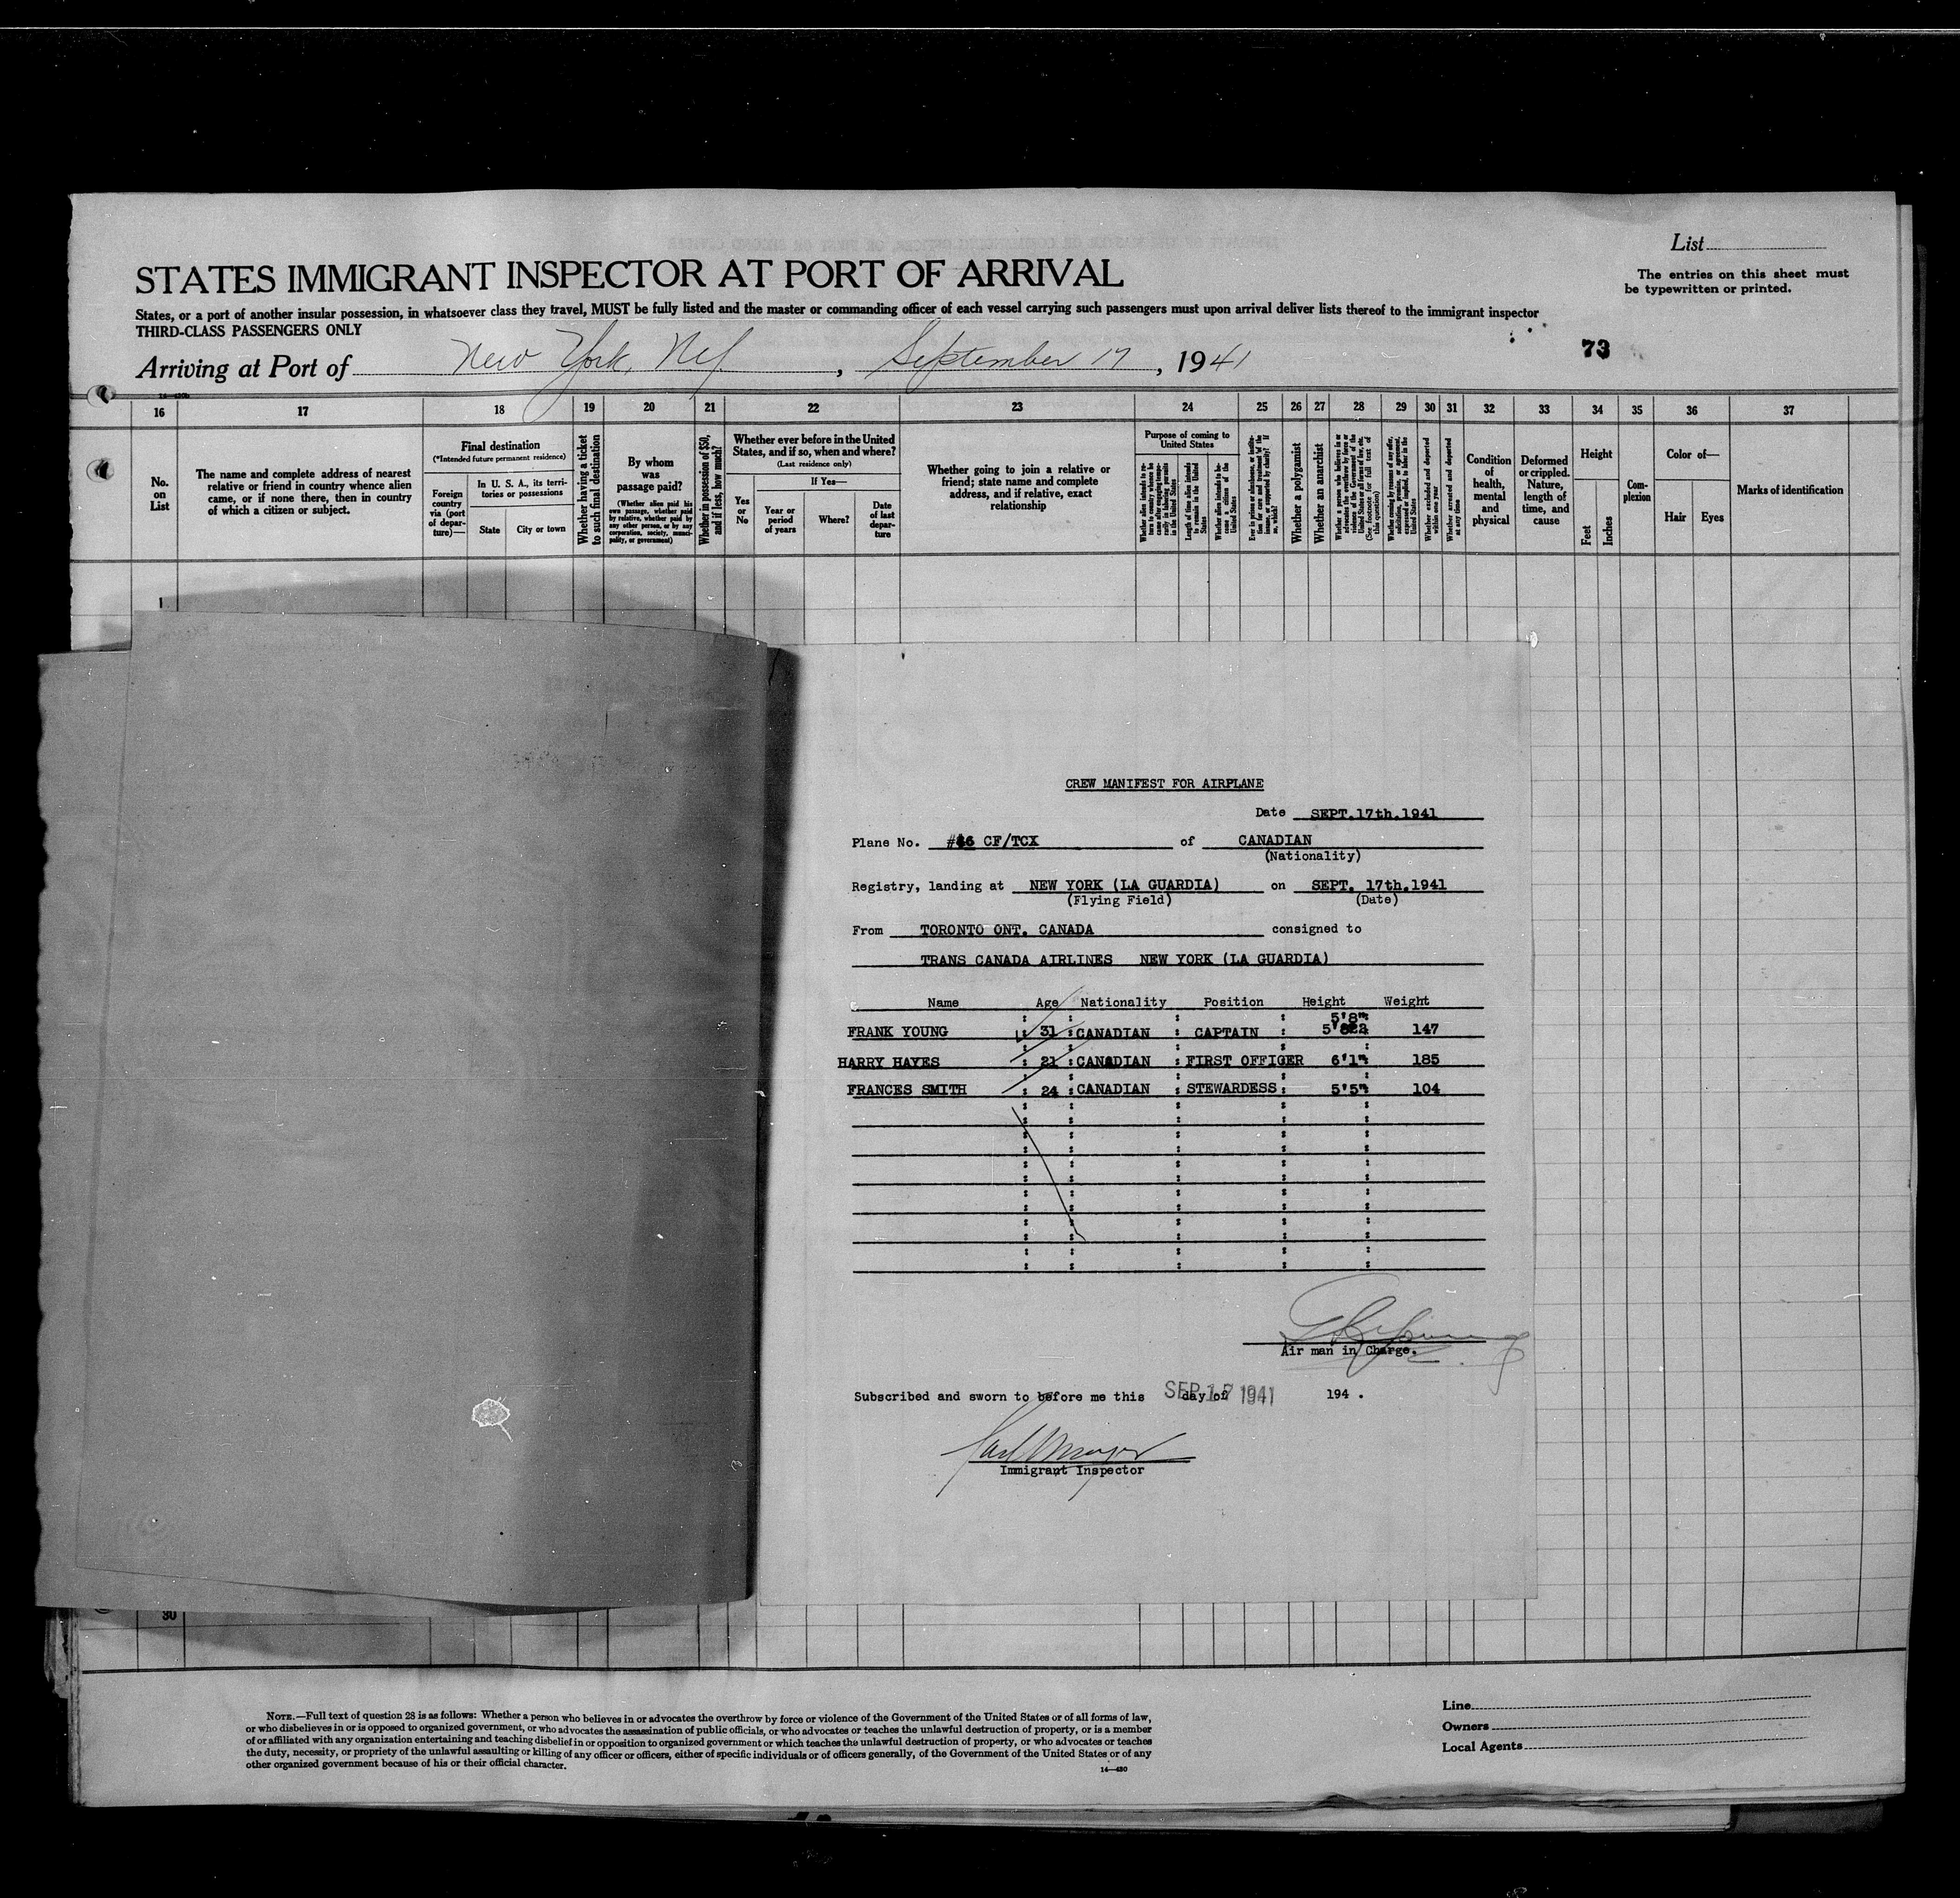 List
STATES IMMIGRANT INSPECTOR AT PORT OF ARRIVAL
The entries on this sheet must
be typewritten or printed.
States, or a port of another insular possession, in whatsoever class they travel, MUST be fully listed and the master or commanding officer of each vessel carrying such passengers must upon arrival deliver lists thereof to the immigrant inspector
THIRD-CLASS PASSENGERS ONLY
73
Arriving at Port of New York, NY. , September 17 , 1941
16 17 18 19 20 21 22 23 24 25 26 27 28 29 30 31 32 33 34 35 36 37
No.
on
List
The name and complete address of nearest
relative or friend in country whence alien
came, or if none there, then in country
of which a citizen or subject.
Final destination
(*Intended future permanent residence)
Foreign
country
via (port
of depar-
ture)—
In U. S. A., its terri-
tories or possessions
State City or town
Whether having a ticket
to such final destination
By whom
was
passage paid?
(Whether alien paid his
own passage, whether paid
by relative, whether paid by
any other person, or by any
corporation, society, munici-
pality, or government)
Whether in possession of $50,
and if less, how much?
Whether ever before in the United
States, and if so, when and where?
(Last residence only)
Yes
or
No
If Yes—
Year or
period
of years
Where?
Date
of last
depar-
ture
Whether going to join a relative or
friend; state name and complete
address, and if relative, exact
relationship
Purpose of coming to
United States
Length of time alien intends
to remain in the United
States
Whether alien intends to be-
come a citizen of the
United States
Whether a polygamist
Whether an anarchist
Whether excluded and deported
within one year
Whether arrested and deported
at any time
Condition
of
health,
mental
and
physical
Deformed
or crippled.
Nature,
length of
time, and
cause
Height
Feet
Inches
Com-
plexion
Color of—
Hair Eyes
Marks of identification
1
CREW MANIFEST FOR AIRPLANE
Date SEPT.17th.1941
Plane No. #46 CF/TCX of CANADIAN
(Nationality)
Registry, landing at NEW YORK (LA GUARDIA) on SEPT. 17th.1941
(Flying Field) (Date)
From TORONTO ONT. CANADA consigned to
TRANS CANADA AIRLINES NEW YORK (LA GUARDIA)
Name Age Nationality Position Height Weight
5'8"
FRANK YOUNG : 31 : CANADIAN : CAPTAIN : 147
HARRY HAYES : 21 : CANADIAN : FIRST OFFICER 6'1" 185
FRANCES SMITH : 24 : CANADIAN : STEWARDESS : 5'5" 104
Air man in Charge.
Subscribed and sworn to before me this SEP 17 1941 day of 194 .
Immigrant Inspector
30
NOTE.—Full text of question 28 is as follows: Whether a person who believes in or advocates the overthrow by force or violence of the Government of the United States or of all forms of law,
or who disbelieves in or is opposed to organized government, or who advocates the assassination of public officials, or who advocates or teaches the unlawful destruction of property, or is a member
of or affiliated with any organization entertaining and teaching disbelief in or opposition to organized government or which teaches the unlawful destruction of property, or who advocates or teaches
the duty, necessity, or propriety of the unlawful assaulting or killing of any officer or officers, either of specific individuals or of officers generally, of the Government of the United States or of any
other organized government because of his or their official character.
14—430
Line
Owners
Local Agents